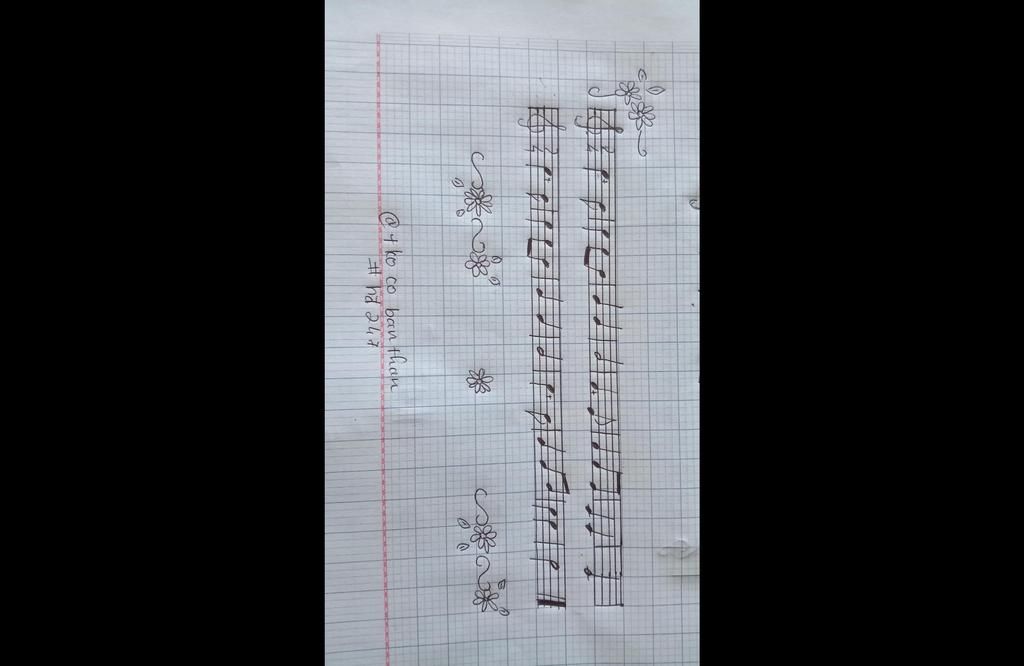 @ t ko co ban than
# hd 247